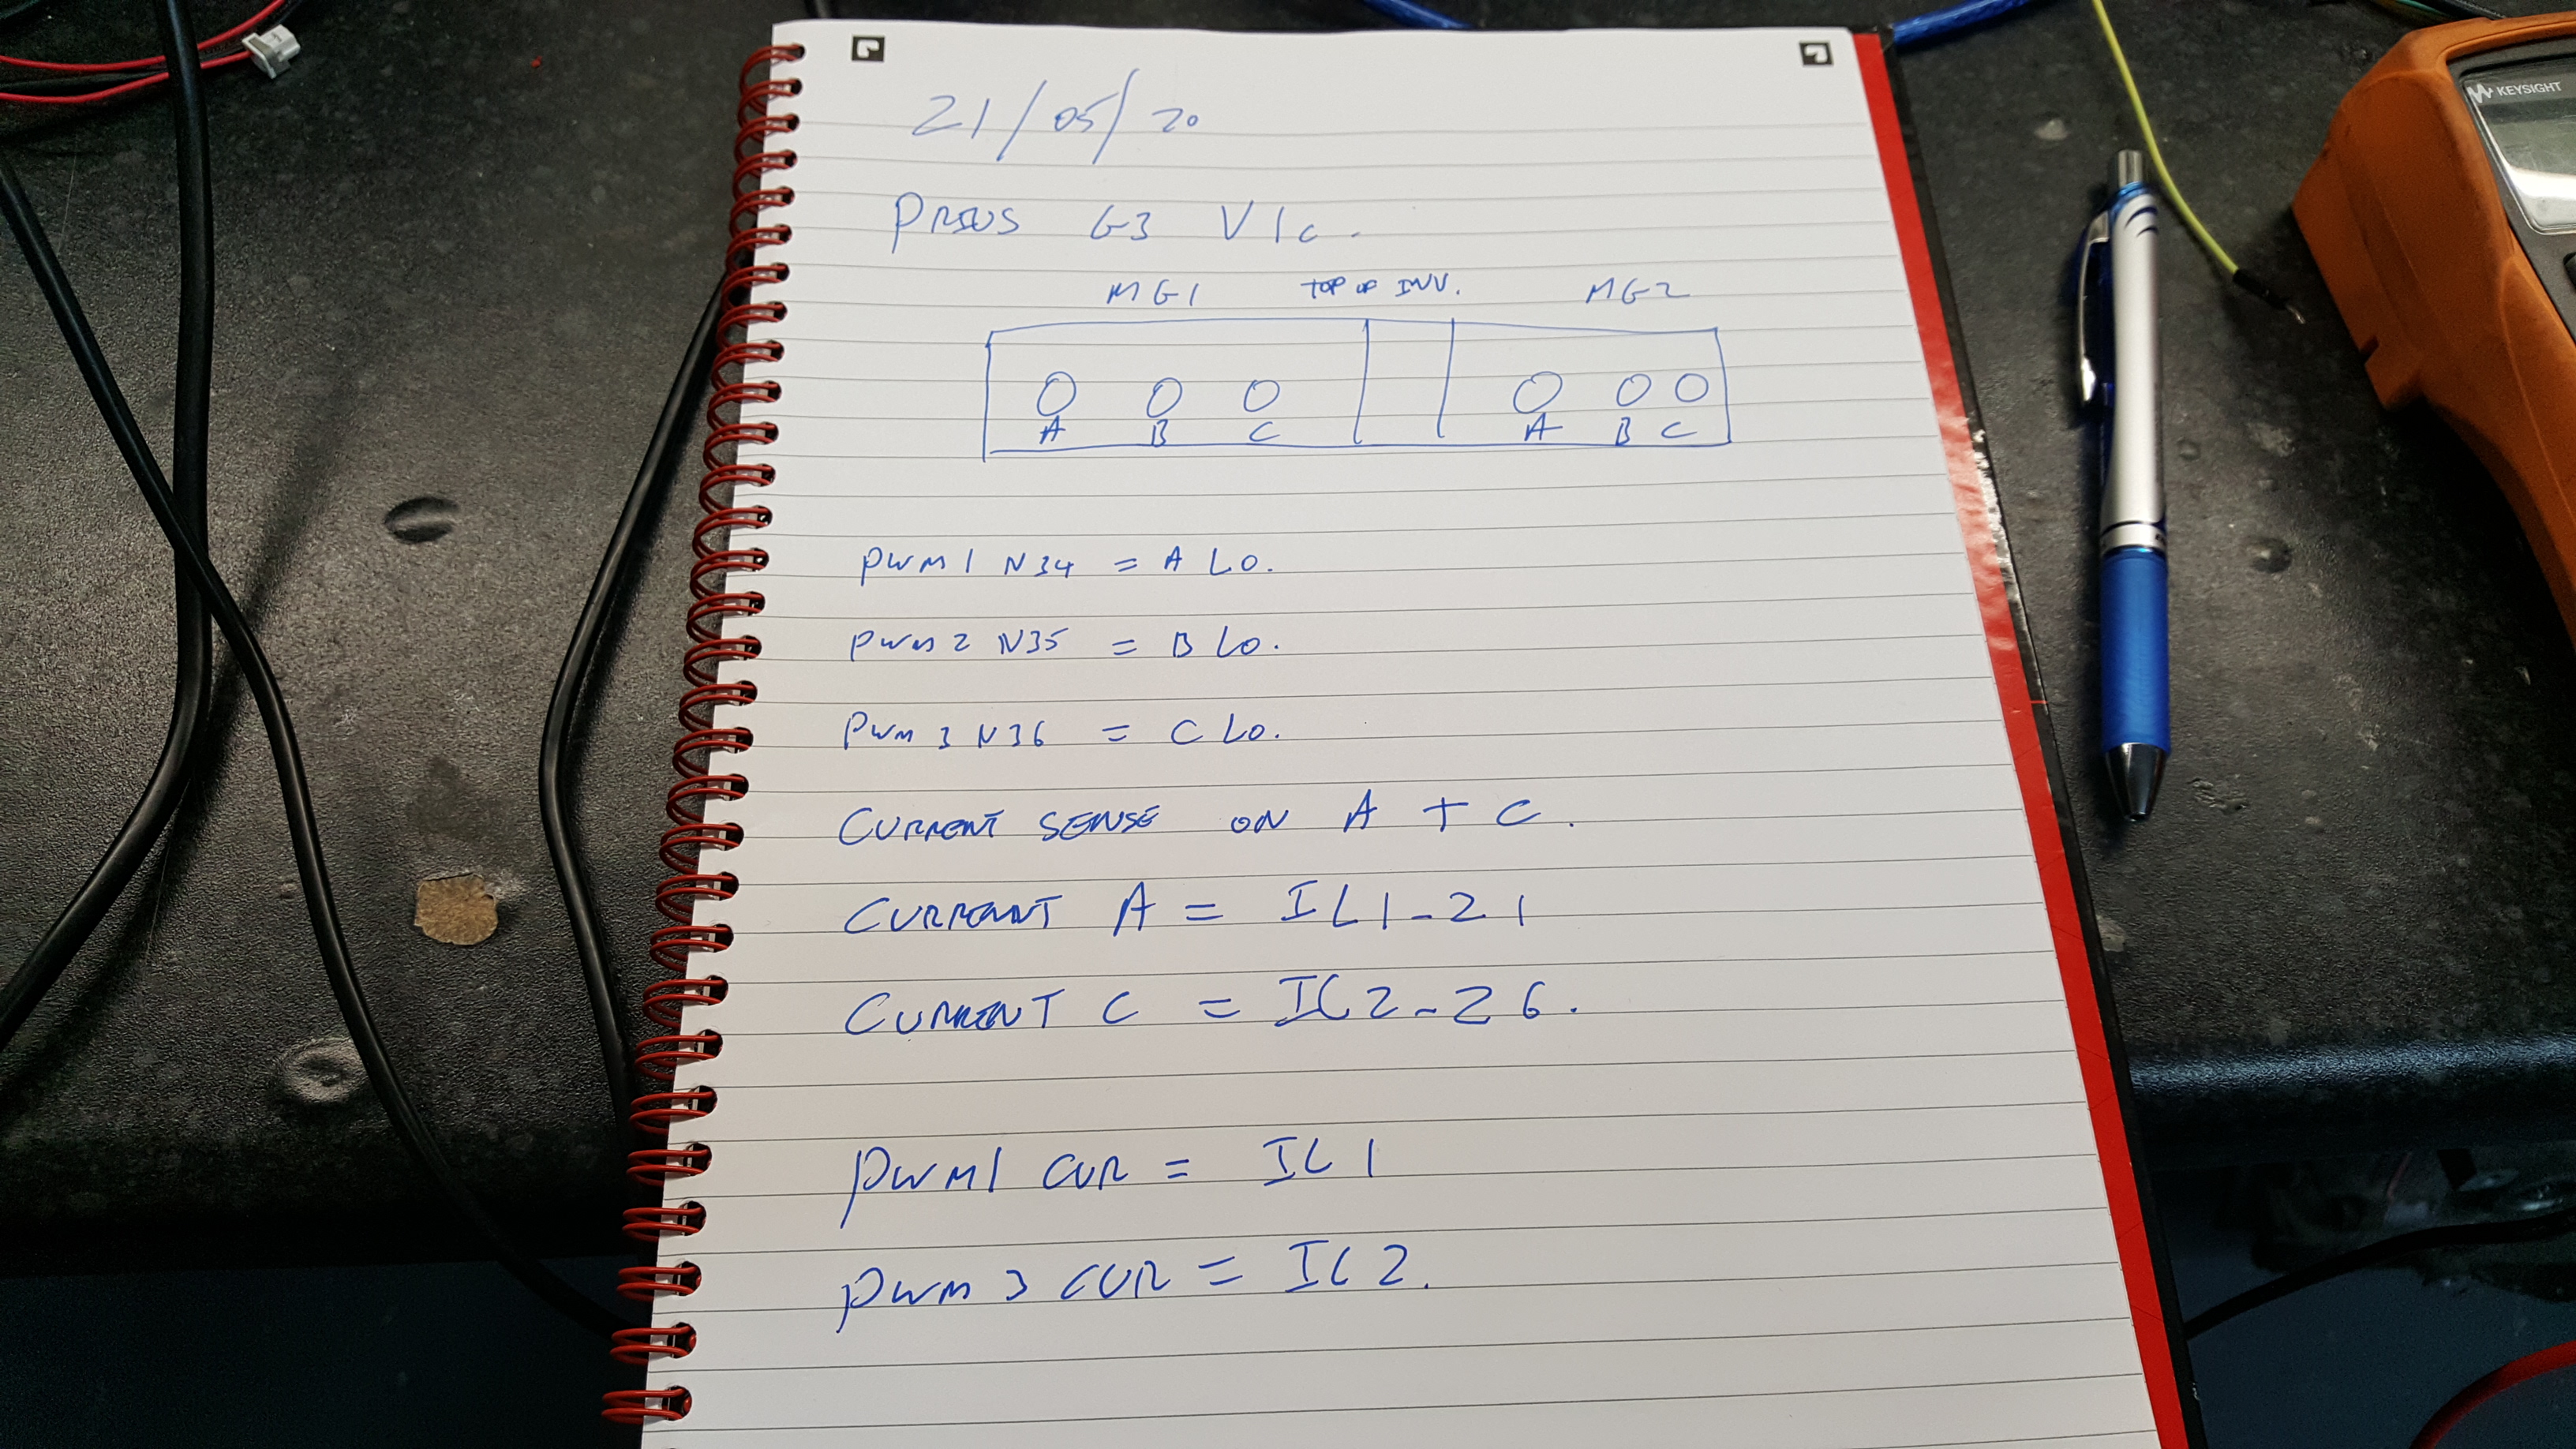 21/05/20
PRIUS G3 V1c.
MG1 TOP OF INV. MG2
A B C A B C
PWM1 N34 = A LO.
PWM2 N35 = B LO.
PWM3 N36 = C LO.
CURRENT SENSE ON A + C.
CURRENT A = IL1-21
CURRENT C = IL2-26.
PWM1 CUR = IL1
PWM3 CUR = IL2.
KEYSIGHT